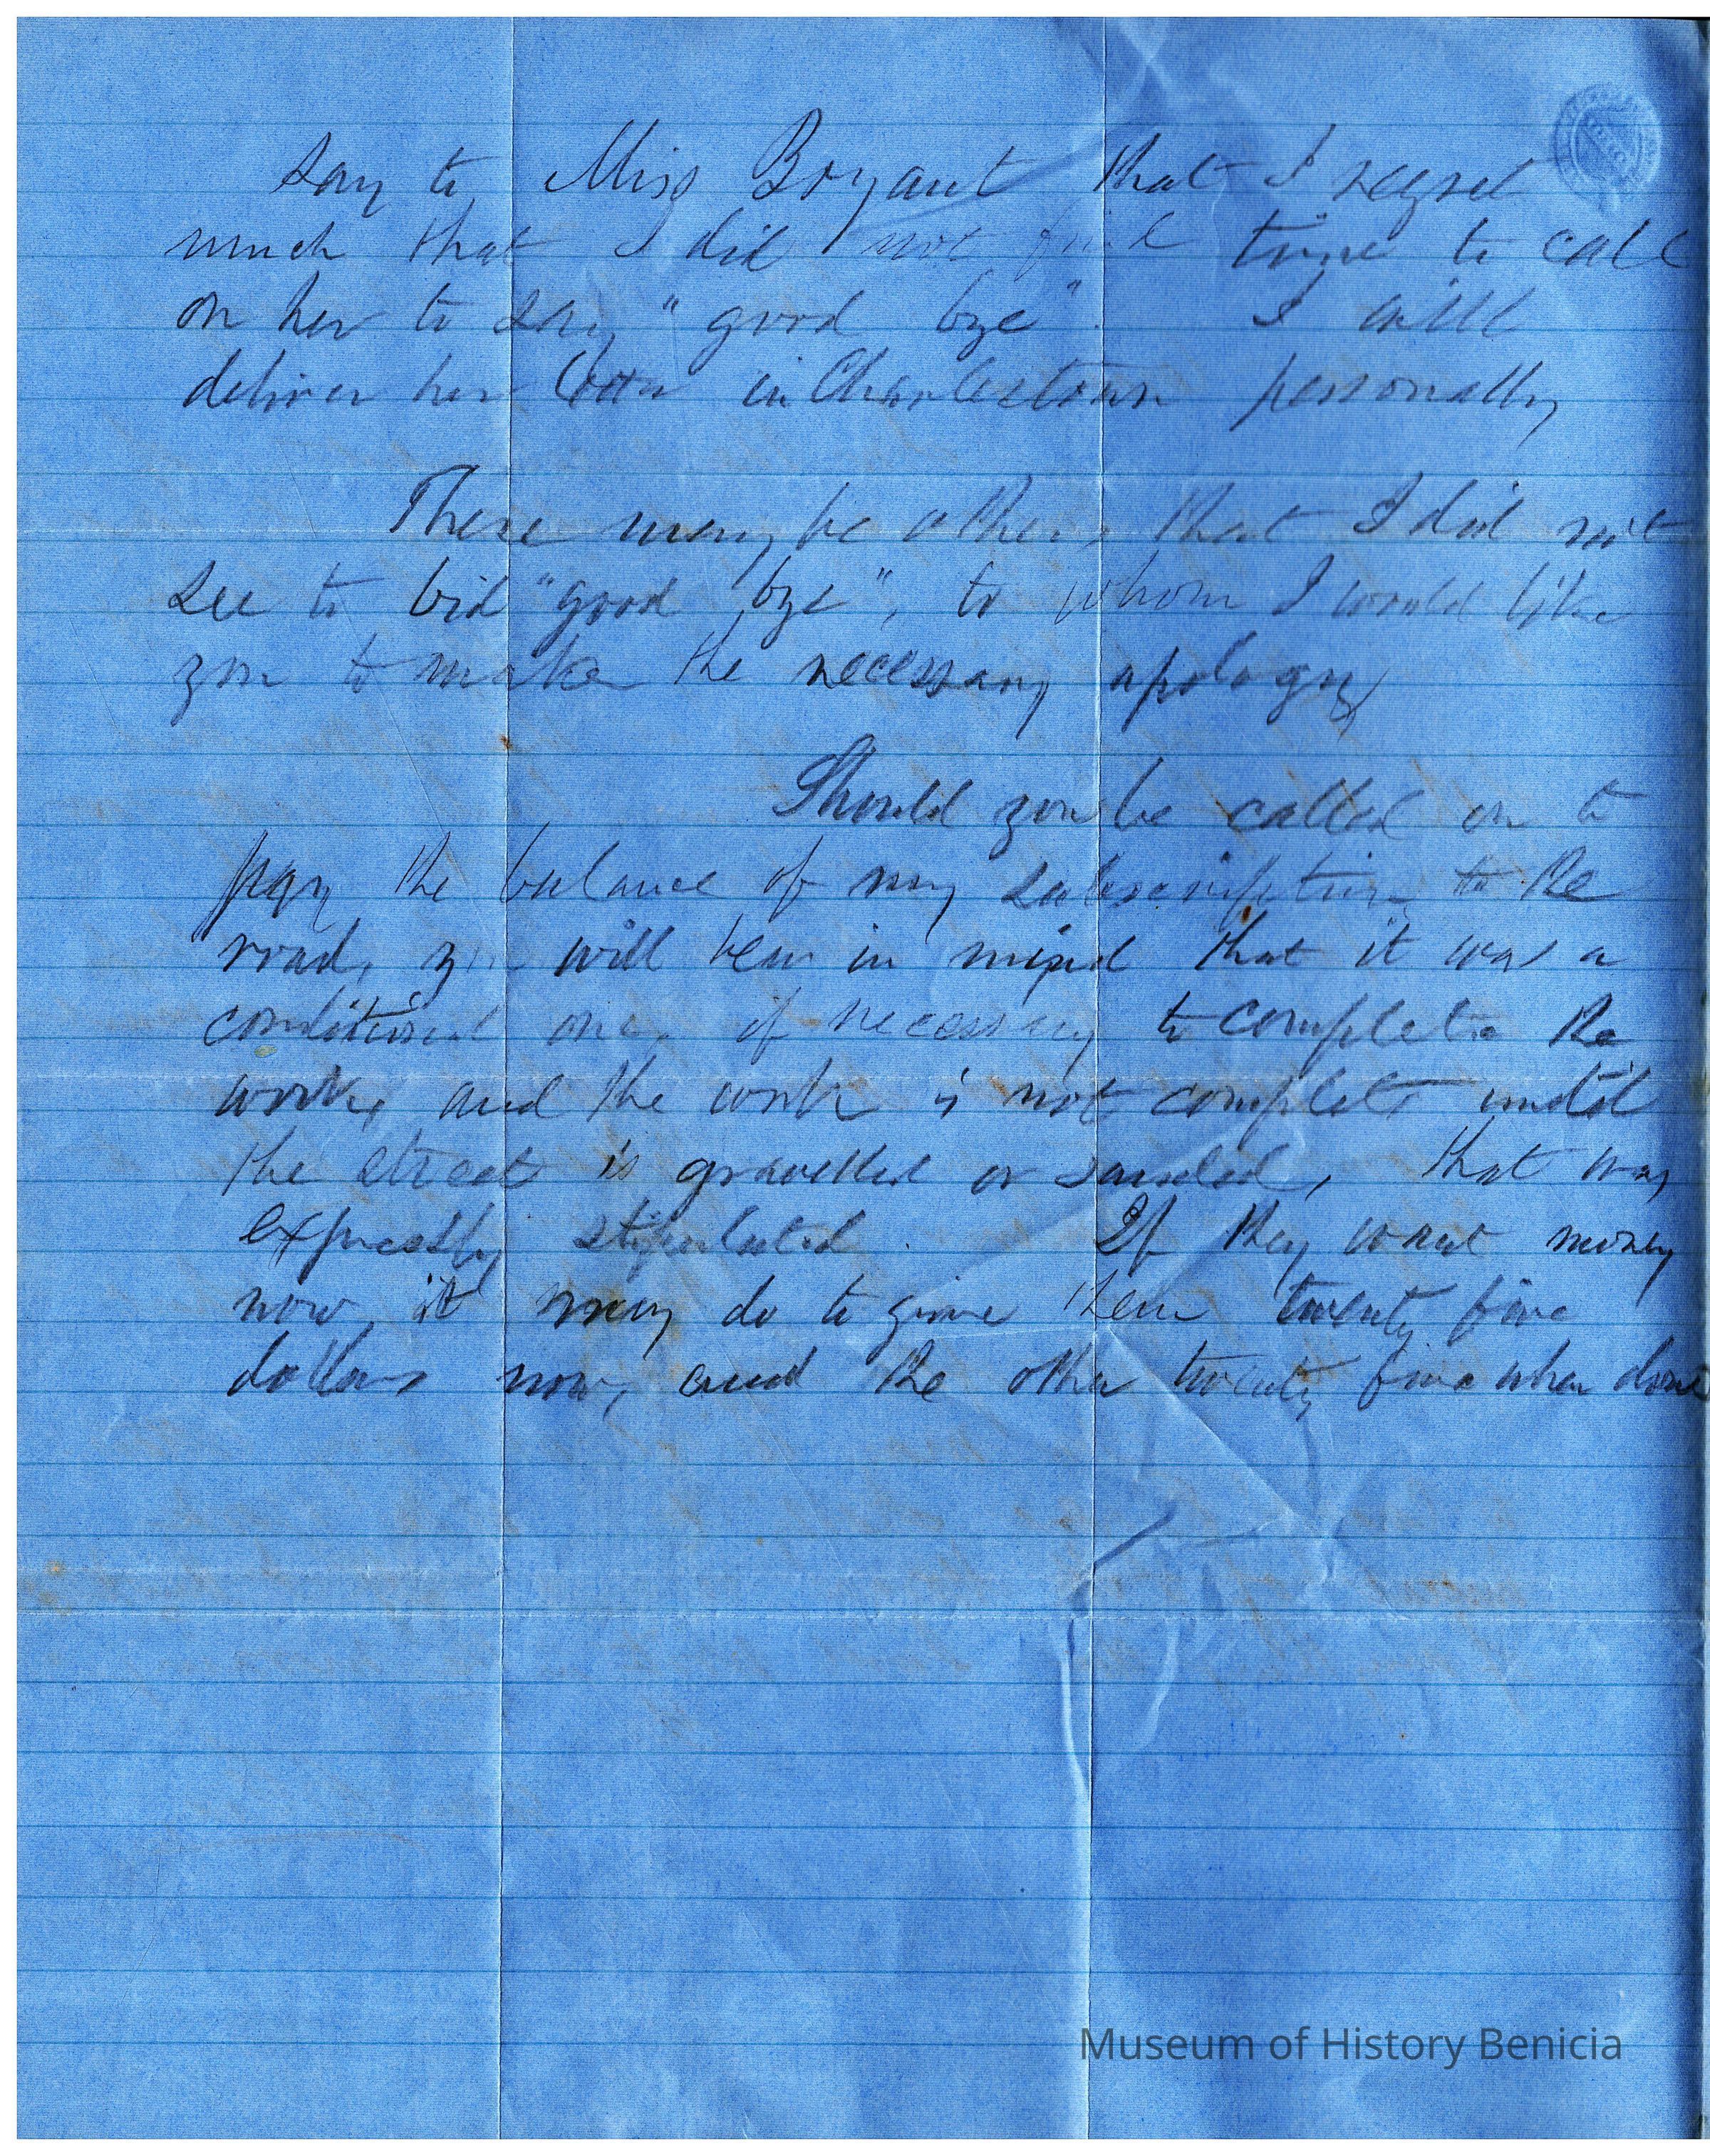 Say to Miss Bryant that I regret
much that I did not find time to call
on her to say "good bye". I will
deliver her letter in Charlestown personally
There may be others that I did not
see to bid "good bye", to whom I would like
you to make the necessary apology
Should you be called on to
pay the balance of my subscription to the
road, you will bear in mind that it was a
conditional one, if necessary to complete the
work, and the work is not complete until
the street is gravelled or sanded, that was
expressly stipulated. If they want money
now, it may do to give them twenty five
dollars now, and the other twenty five when done
Museum of History Benicia